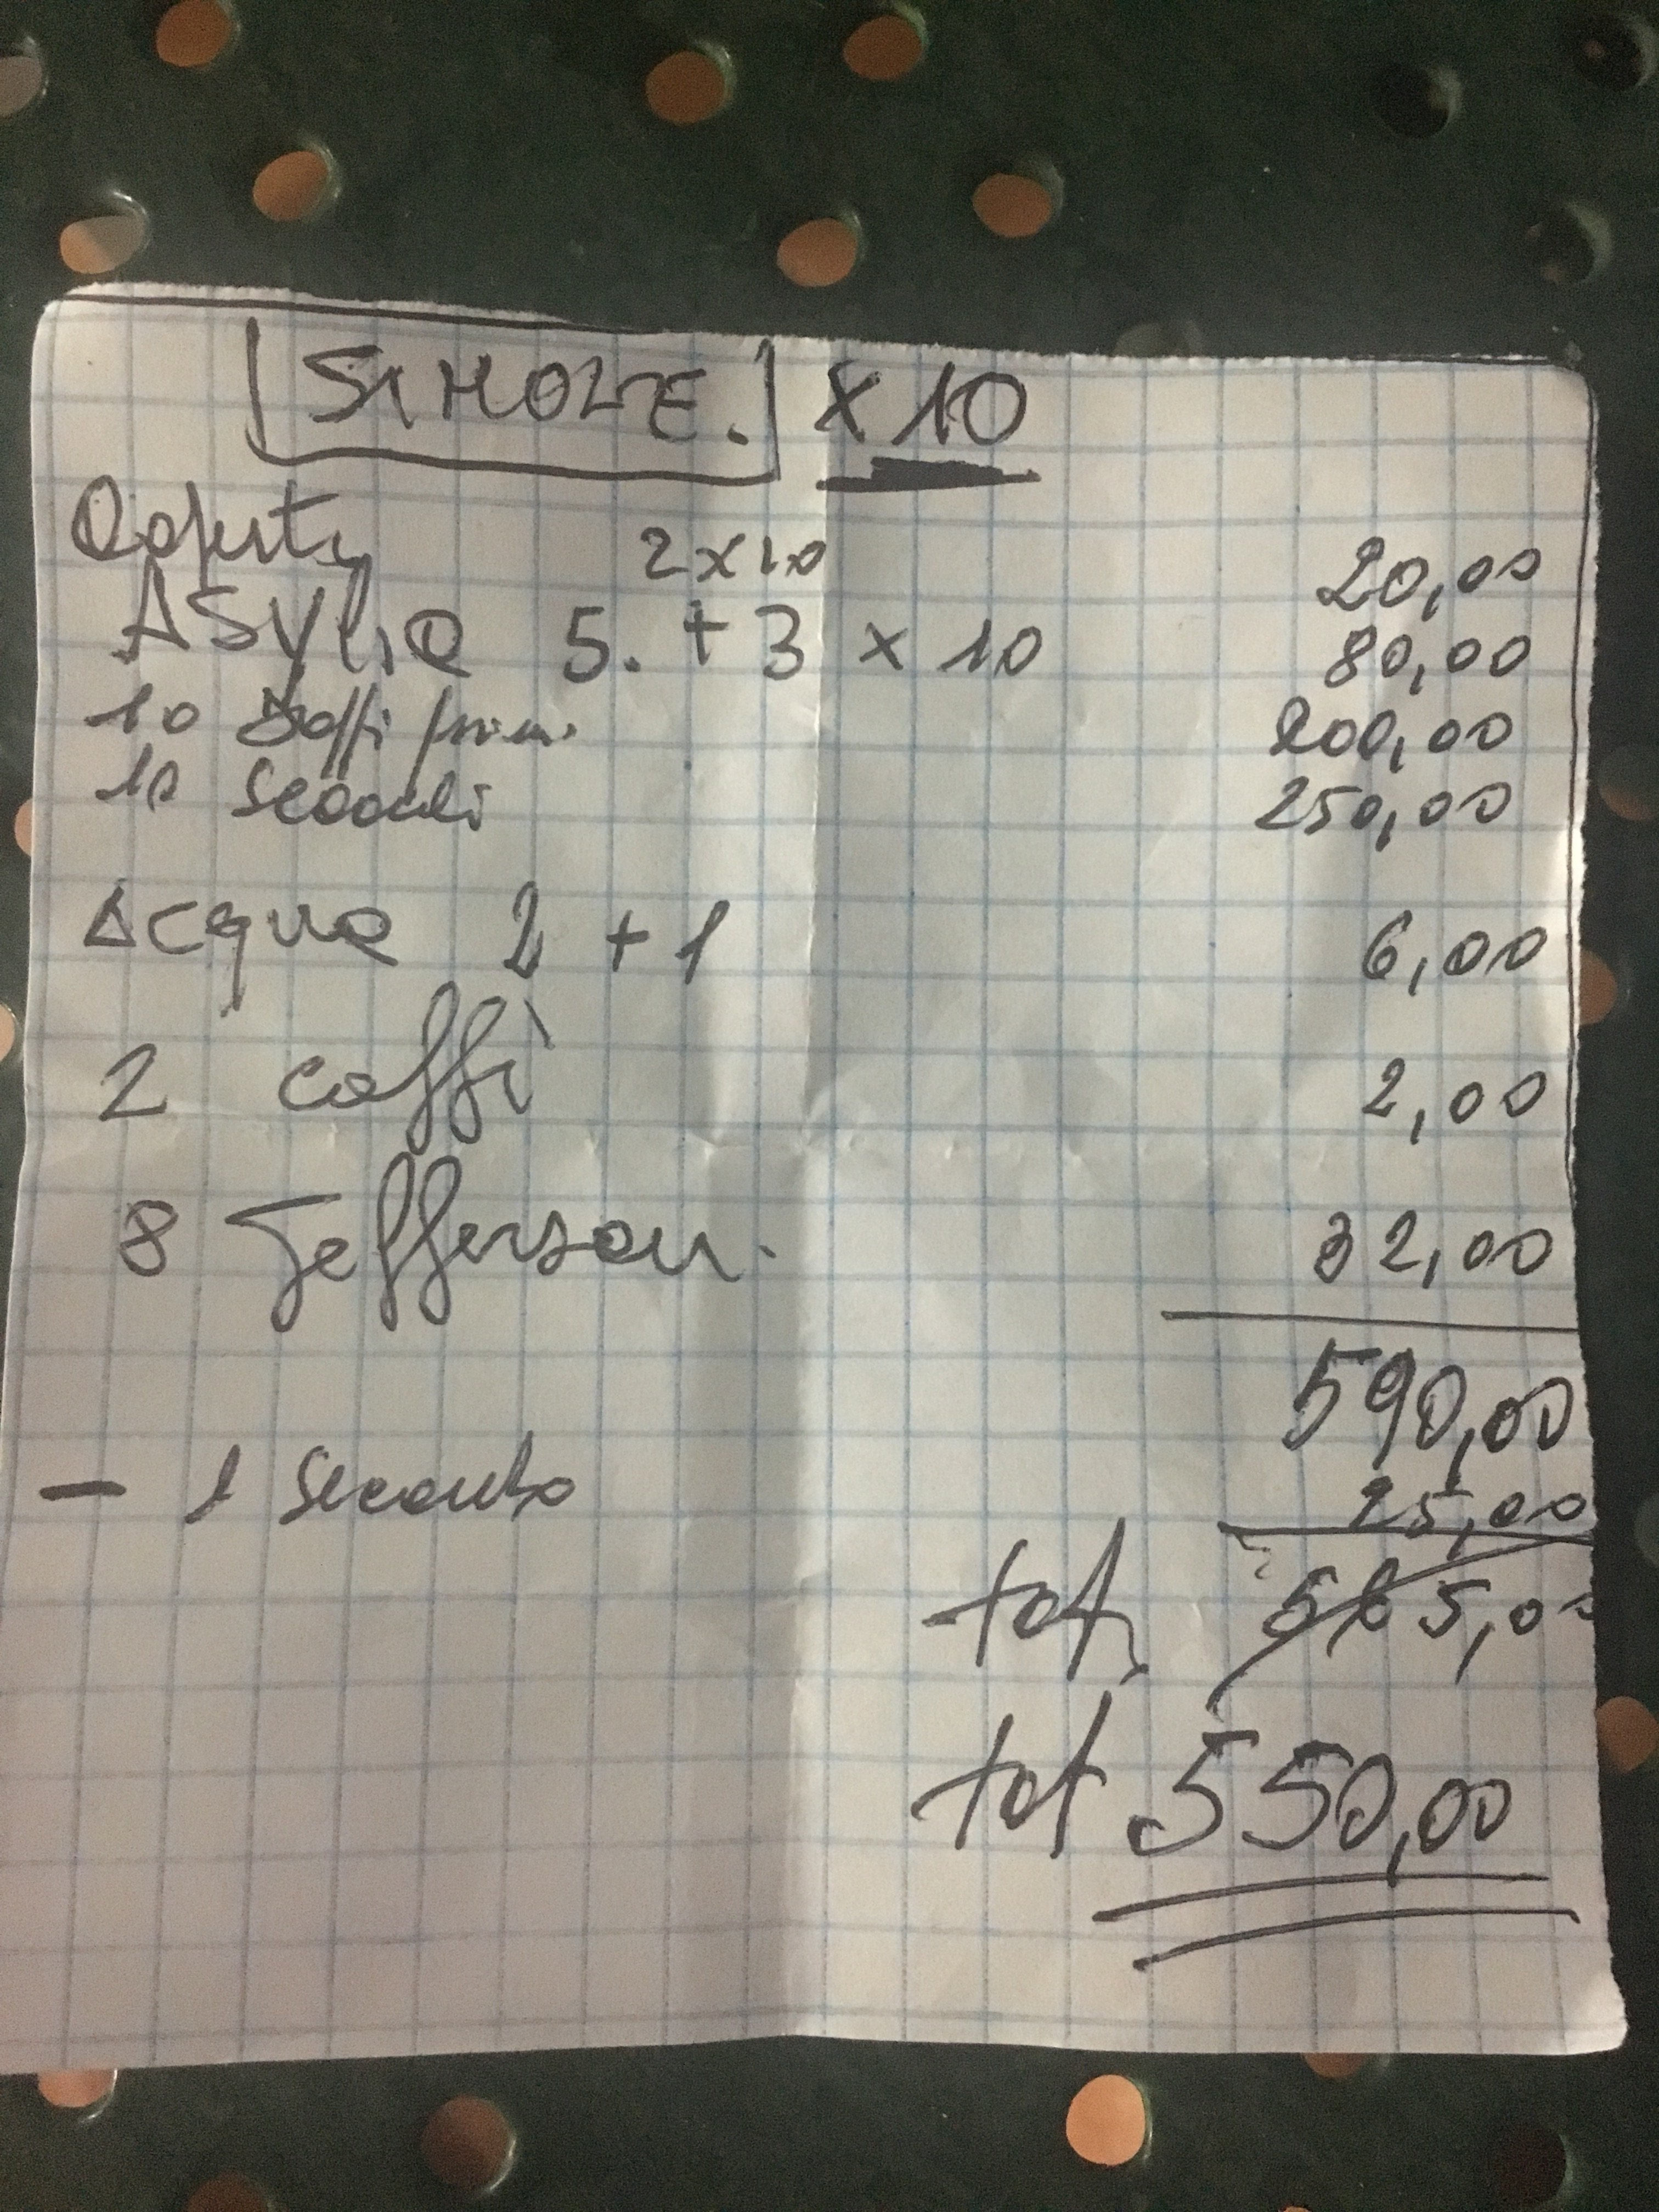 SIMONE. x 10
Coperti 2x10 20,00
ASylia 5. + 3 x 10 80,00
10 primi 200,00
10 Secondi 250,00
Acqua 2 + 1 6,00
2 caffè 2,00
8 Jefferson. 32,00
590,00
- 1 Secondo 25,00
tot, 565,00
tot 550,00